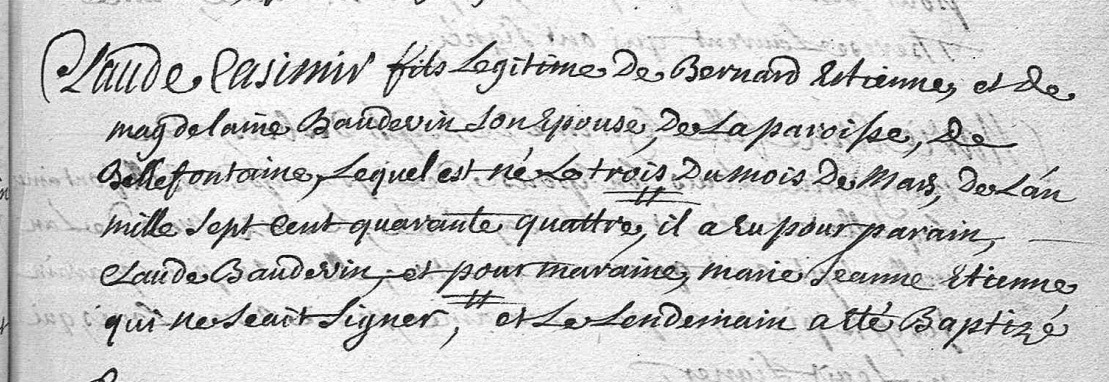 Claude Casimir fils Legitime De Bernard Etienne, et de
magdelaine Baudevin son Epouse, De La paroisse, de
Bellefontaine, Lequel est né Le trois Du mois De Mars, De L'an
mille sept cent quarante quattre, il a Eu pour parain,
Claude Baudevin, et pour maraine, marie Jeanne Etienne
qui ne Scait Signer, et Le Lendemain a Eté Baptizé